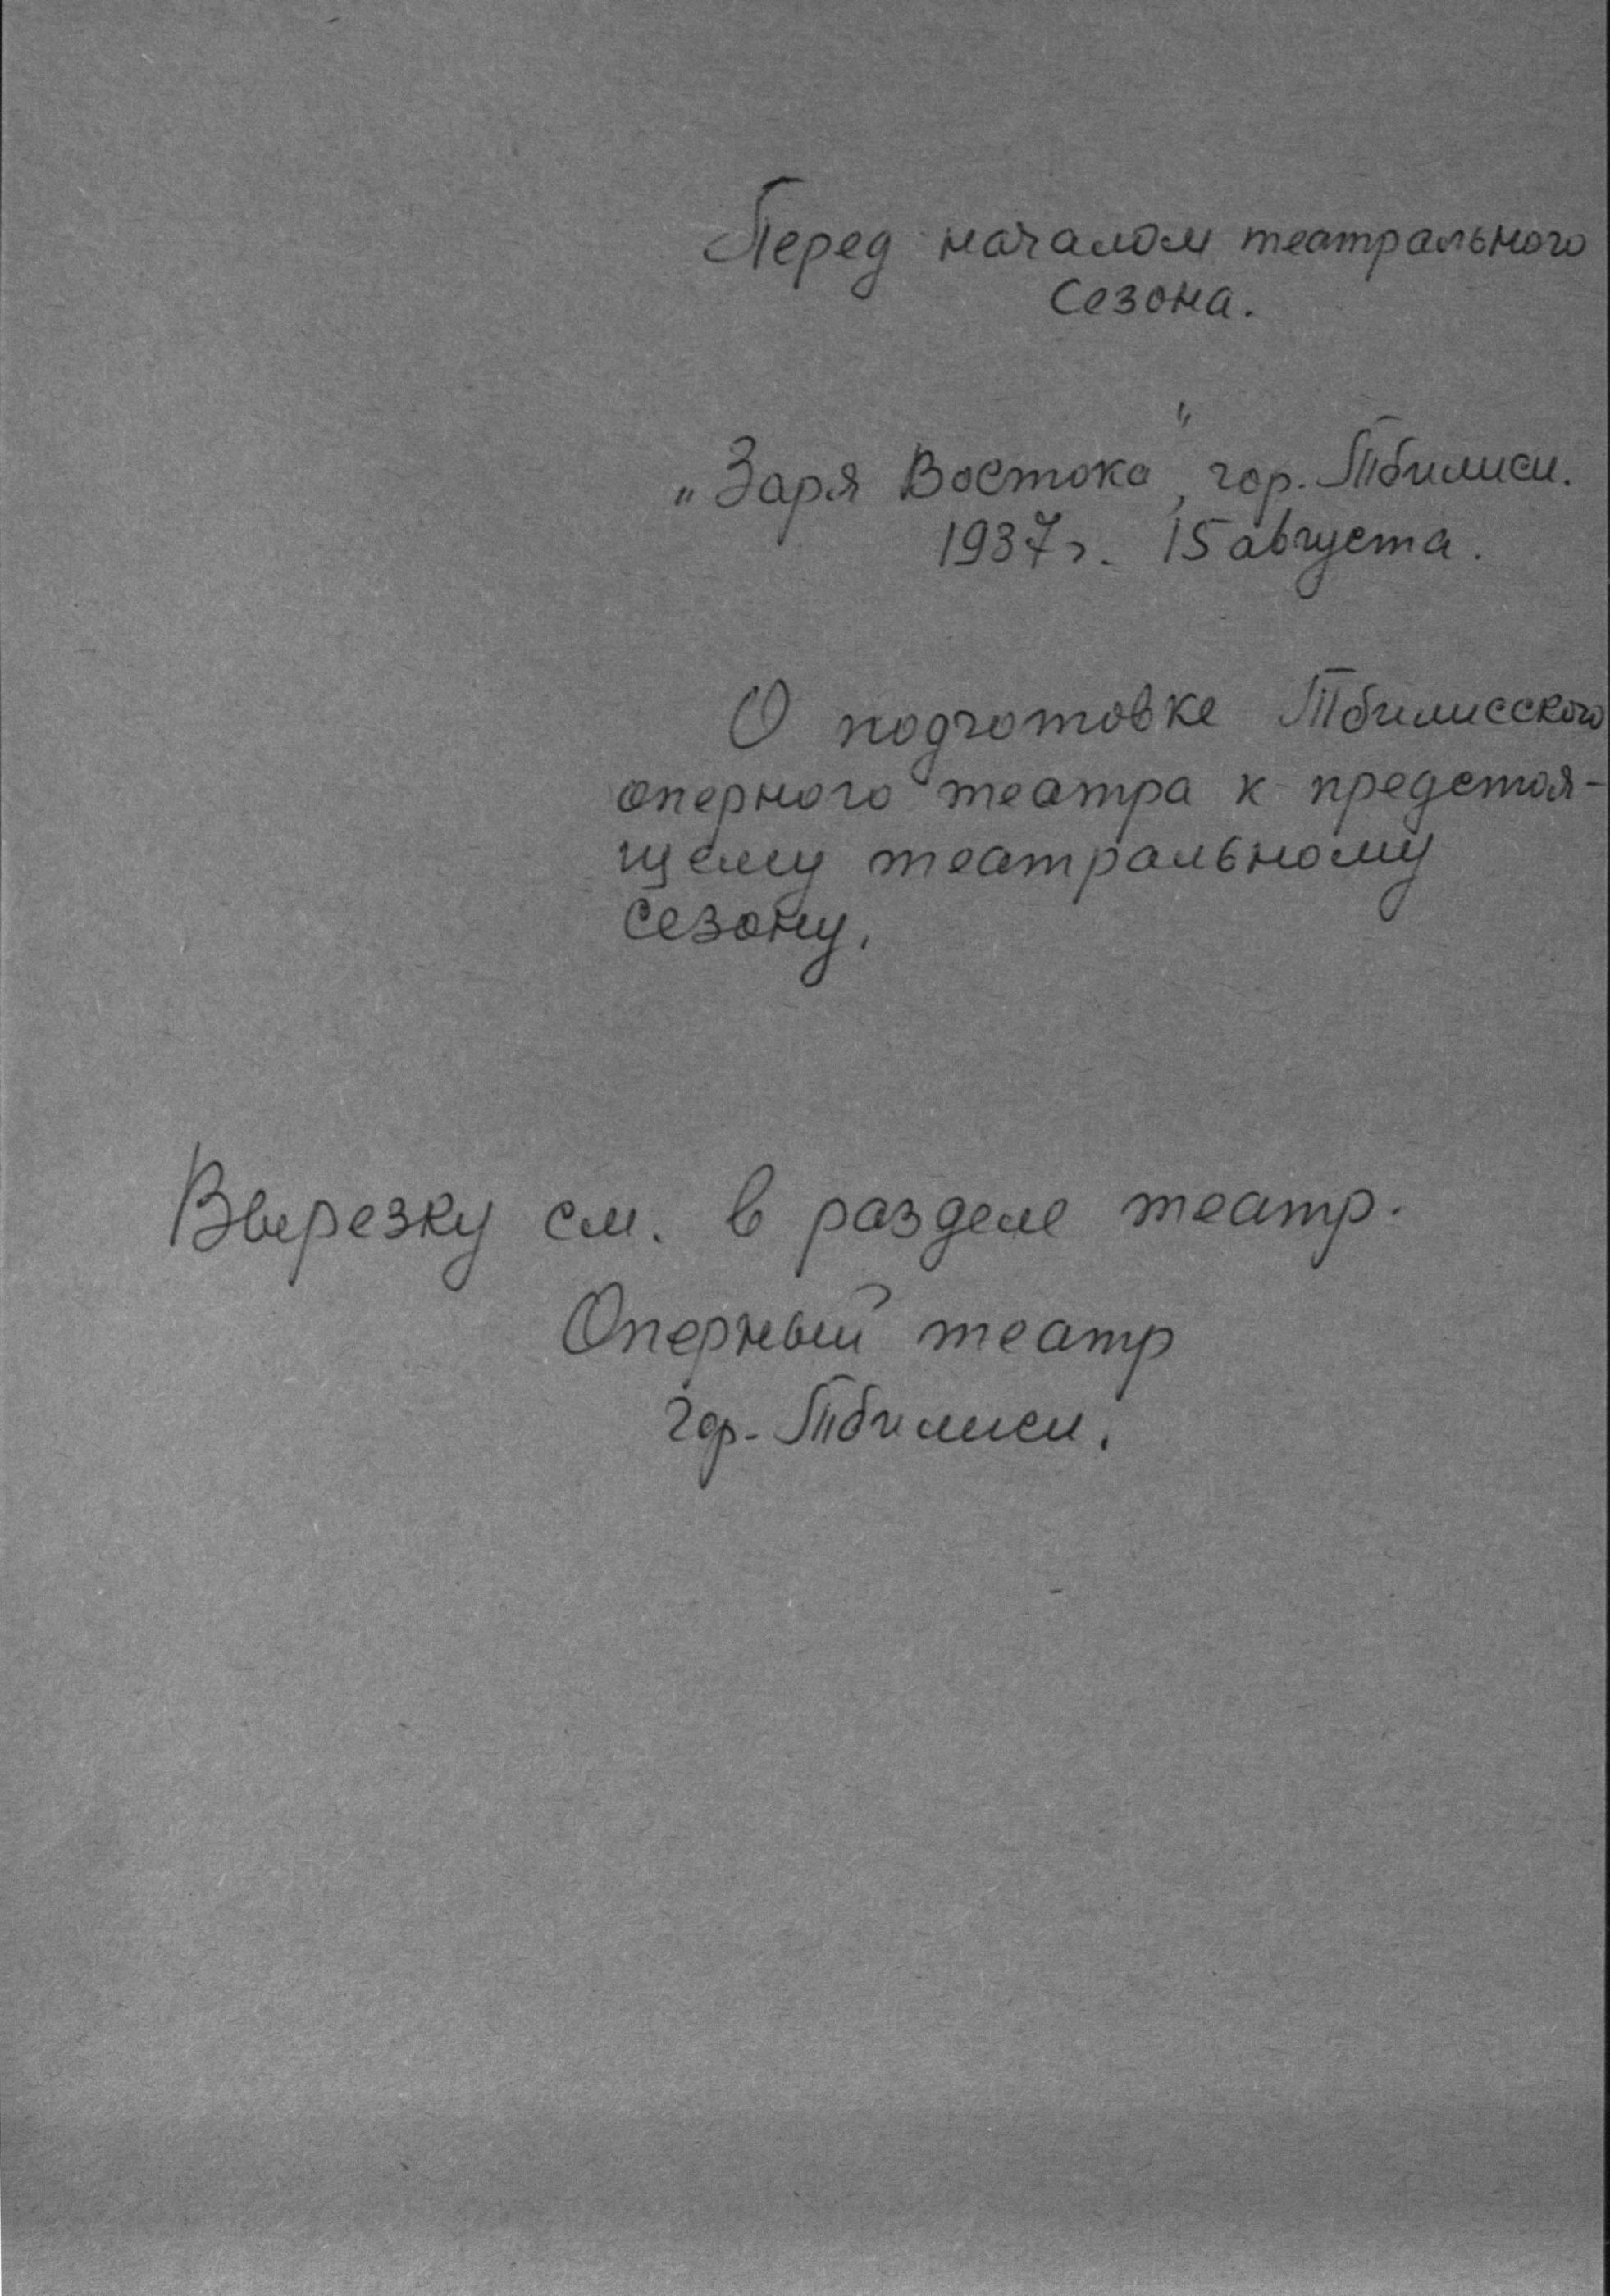 Перед началом театрального
сезона.
„Заря Востока", гор. Тбилиси.
1937 г. 15 августа.
О подготовке Тбилисского
оперного театра к предстоя-
щему театральному
сезону.
Вырезку см. в разделе театр.
Оперный театр
гор. Тбилиси.